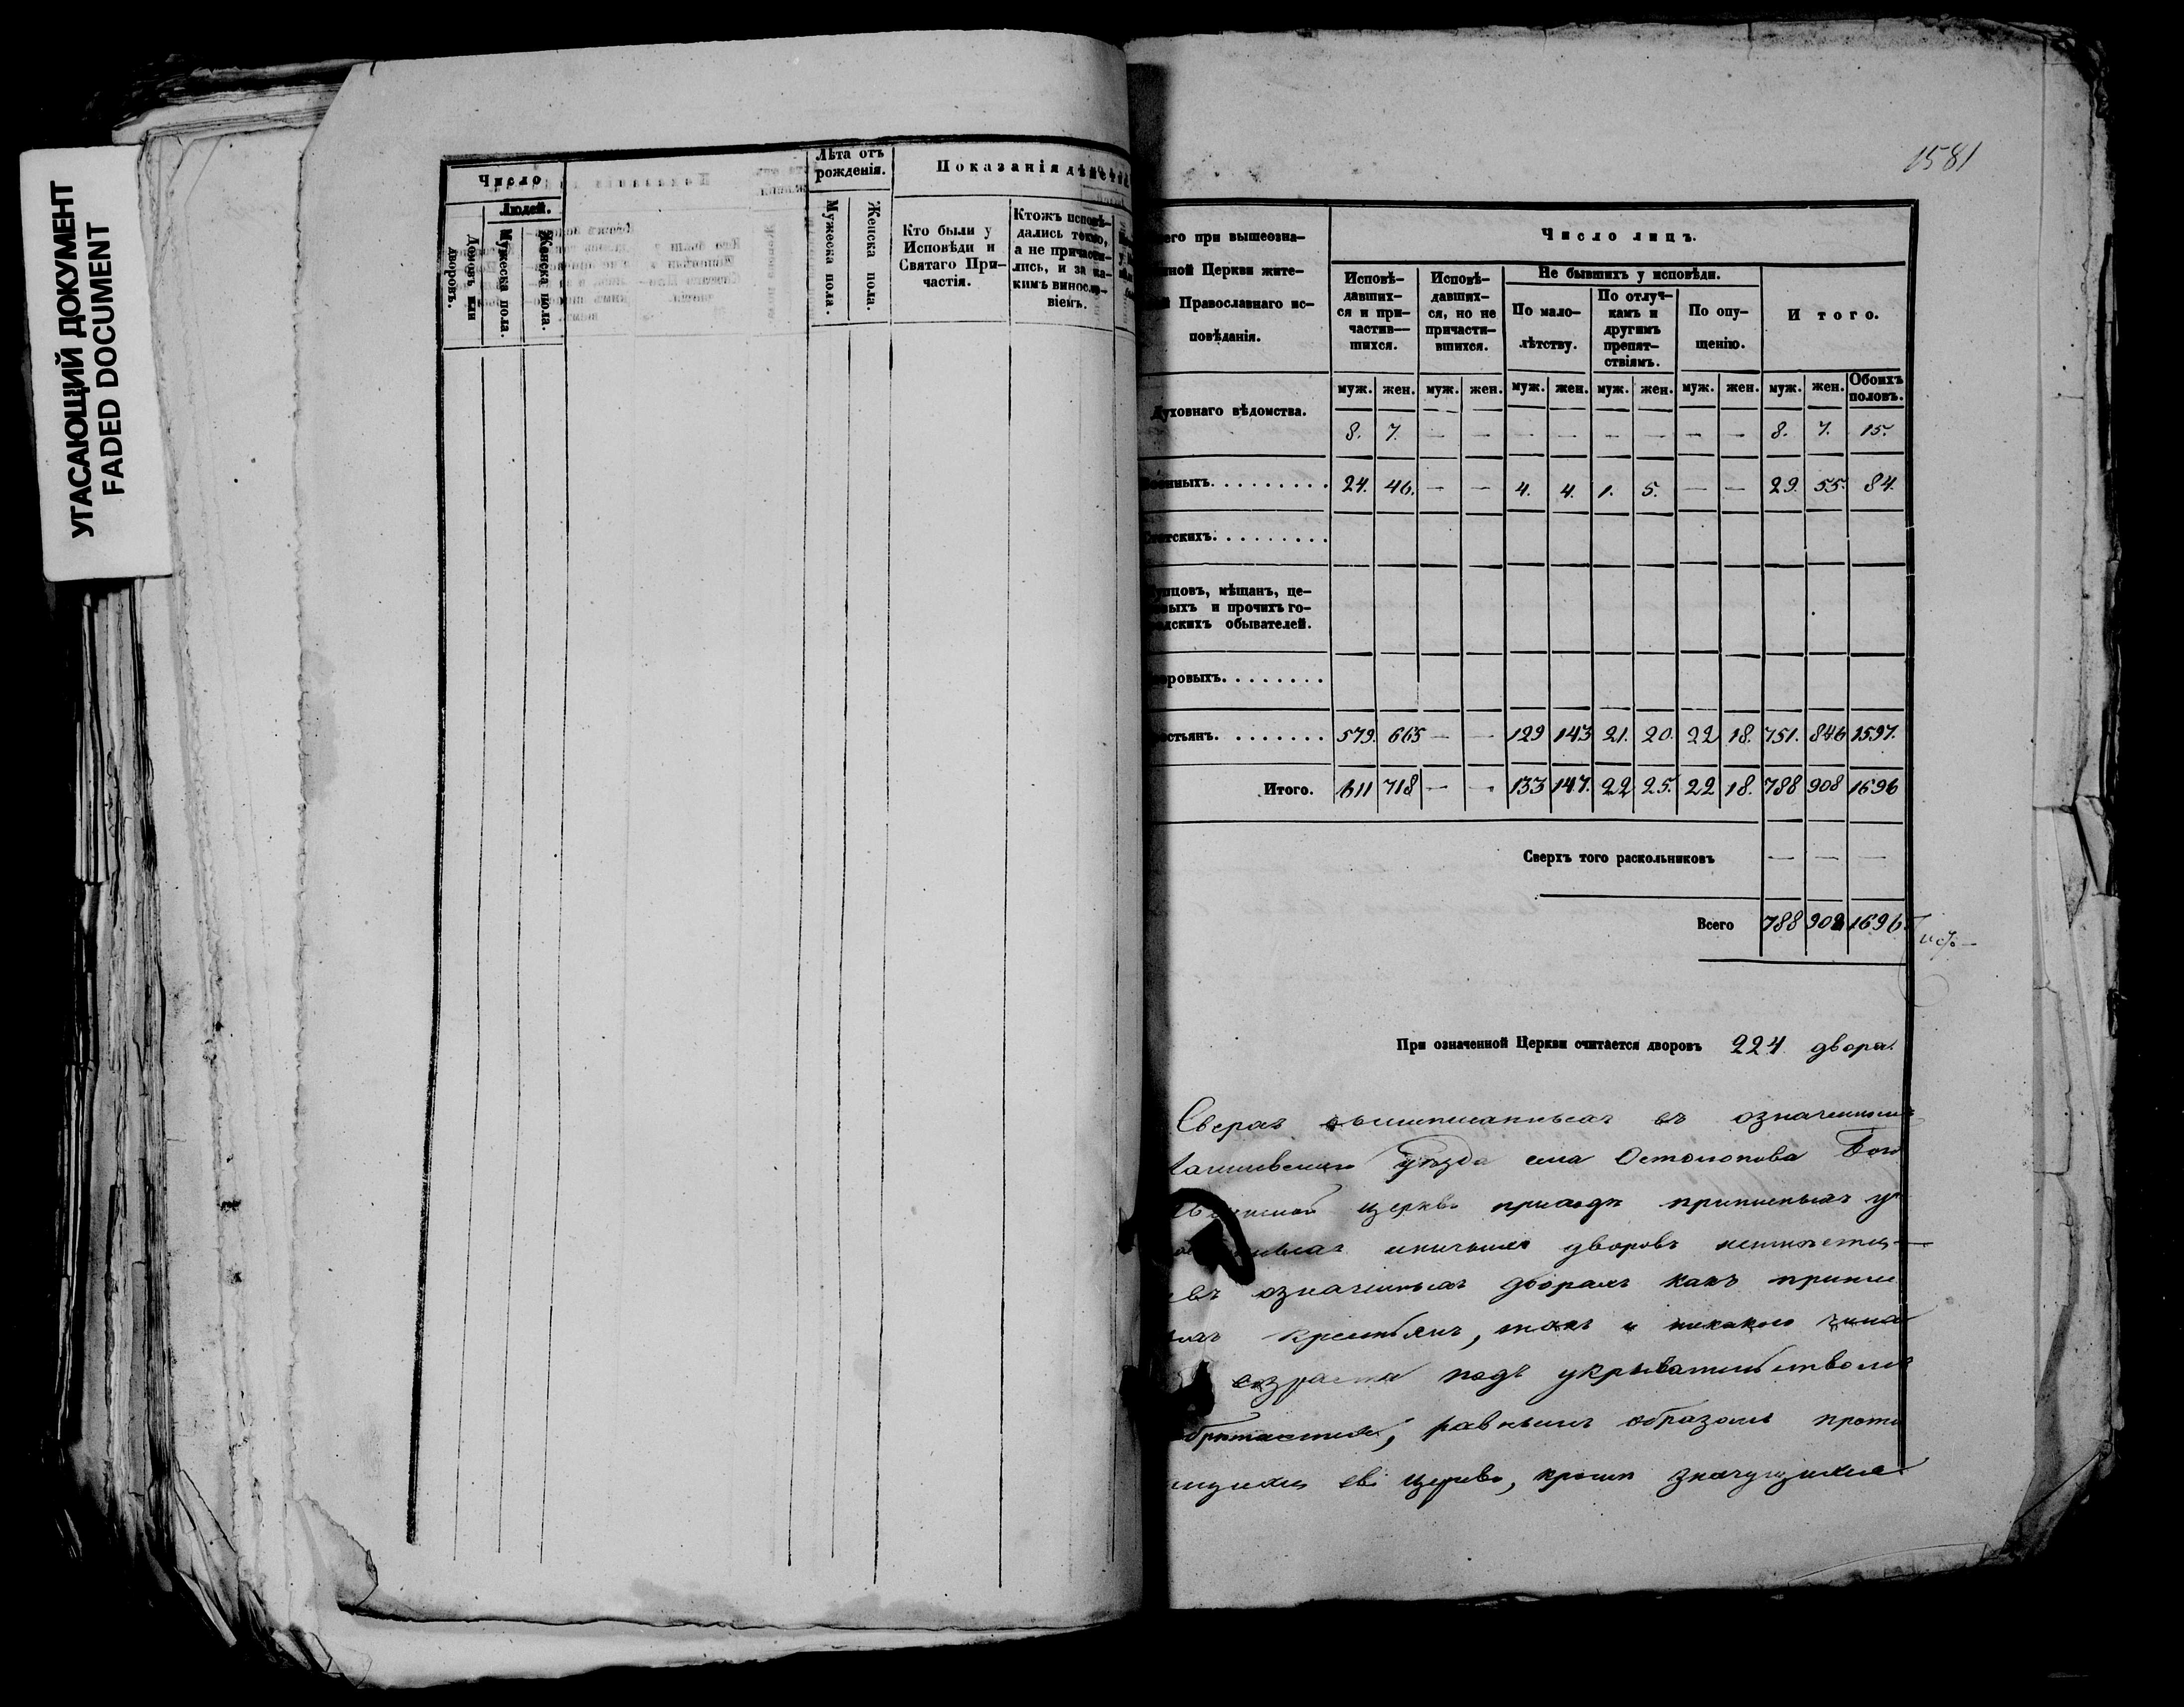 УГАСАЮЩИЙ ДОКУМЕНТ
FADED DOCUMENT
Число
Людей.
Домовъ или дворовъ.
Мужеска пола.
Женска пола.
Лѣта отъ рожденія.
Мужеска пола.
Женска пола.
Показанія
Кто были у
Исповѣди и
Святаго При-
частія.
Ктожъ исповѣ-
дались токмо,
а не причасти-
лись, и за ка-
кимъ винословіемъ.
1581
его при вышеозна-
ной Церкви жите-
й Православнаго ис-
повѣданія.
Число лицъ.
Исповѣ-
давших-
ся и при-
частив-
шихся.
Исповѣ-
давших-
ся, но не
причасти-
вшихся.
Не бывшихъ у исповѣди.
По мало-
лѣтству.
По отлуч-
камъ и
другимъ
препят-
ствіямъ.
По опу-
щенію.
Итого.
муж. жен. муж. жен. муж. жен. муж. жен. муж. жен. муж. жен. Обоихъ половъ.
Духовнаго вѣдомства.
8. 7. — — — — — — — — 8. 7. 15.
Военныхъ. . . . . . . . . 24. 46. — — 4. 4. 1. 5. — — 29. 55. 84.
Статскихъ. . . . . . . . .
упцовъ, мѣщанъ, це-
овыхъ и прочихъ го-
одскихъ обывателей.
воровыхъ. . . . . . . .
стьянъ. . . . . . . . 579. 665 — — 129 143 21. 20. 22 18. 751. 846 1597.
Итого. 611 718 — — 133 147. 22 25. 22 18. 788 908 1696
Сверхъ того раскольниковъ — — —
Всего 788 908 1696
При означенной Церкви считается дворовъ 224 двора.
Сверхъ вышеписанныхъ въ означенномъ
уѣзда села Остолопова
церкви приходѣ
дворовъ
въ означенныхъ дворахъ какъ
крестьянъ, такъ и никакого чина
возраста подъ укрывательствомъ
равнымъ образомъ
церковь, кромѣ значущихся